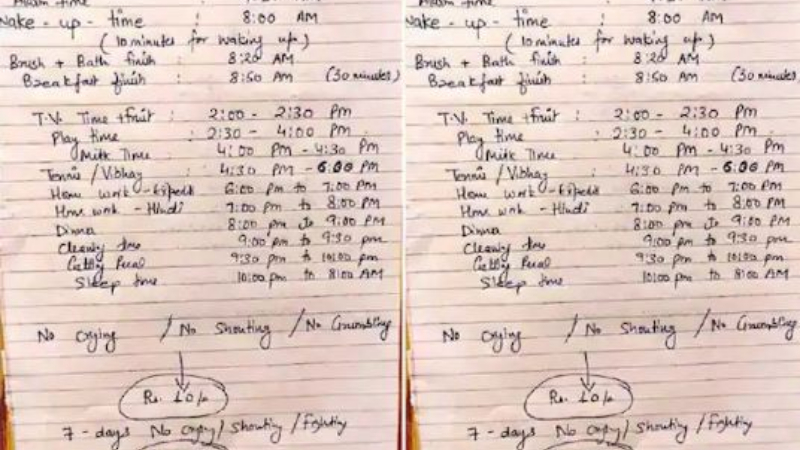 8:00 AM
Wake - up - time : 8:00 AM
(10 minutes for waking up)
Brush + Bath finish : 8:20 AM
Breakfast finish : 8:50 AM (30 minutes)
T.V. Time + fruit : 2:00 - 2:30 Pm
Play time : 2:30 - 4:00 Pm
Milk Time : 4:00 Pm - 4:30 Pm
Tennis / Vibhay 4:30 PM - 6:00 PM
Home work - 6:00 Pm to 7:00 Pm
Home work - Hindi 7:00 Pm to 8:00 Pm
Dinner 8:00 pm to 9:00 PM
Cleaning time 9:00 pm to 9:30 pm
9:30 pm to 10:00 pm
Sleep time 10:00 pm to 8:00 AM
No Crying / No Shouting / No Grumbling
Rs. 10/-
7 - days No Crying / Shouting / Fighting
Wake - up - time : 8:00 AM
(10 minutes for waking up)
Brush + Bath finish : 8:20 AM
Breakfast finish : 8:50 AM (30 minutes)
T.V. Time + fruit : 2:00 - 2:30 Pm
Play time : 2:30 - 4:00 Pm
Milk Time : 4:00 Pm - 4:30 Pm
Tennis / Vibhay 4:30 PM - 6:00 PM
Home work - 6:00 Pm to 7:00 Pm
Home work - Hindi 7:00 Pm to 8:00 Pm
Dinner 8:00 pm to 9:00 PM
Cleaning time 9:00 pm to 9:30 pm
9:30 pm to 10:00 pm
Sleep time 10:00 pm to 8:00 AM
No Crying / No Shouting / No Grumbling
Rs. 10/-
7 - days No Crying / Shouting / Fighting